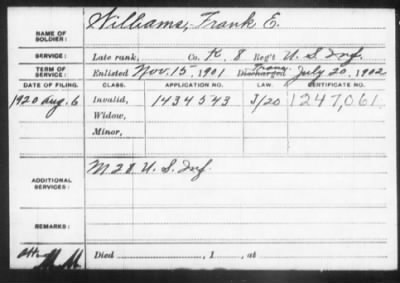 NAME OF SOLDIER: Williams, Frank E.
SERVICE: Late rank, Co. K, 8 Reg't U. S. Inf.
TERM OF SERVICE: Enlisted Nov. 15, 1901 Trans. Discharged July 20, 1902
DATE OF FILING. CLASS. APPLICATION NO. LAW. CERTIFICATE NO.
1920 Aug. 6 Invalid, 1434543 J/20 1247,061
Widow,
Minor,
ADDITIONAL SERVICES: M 28 U. S. Inf.
REMARKS:
Died , 1 , at